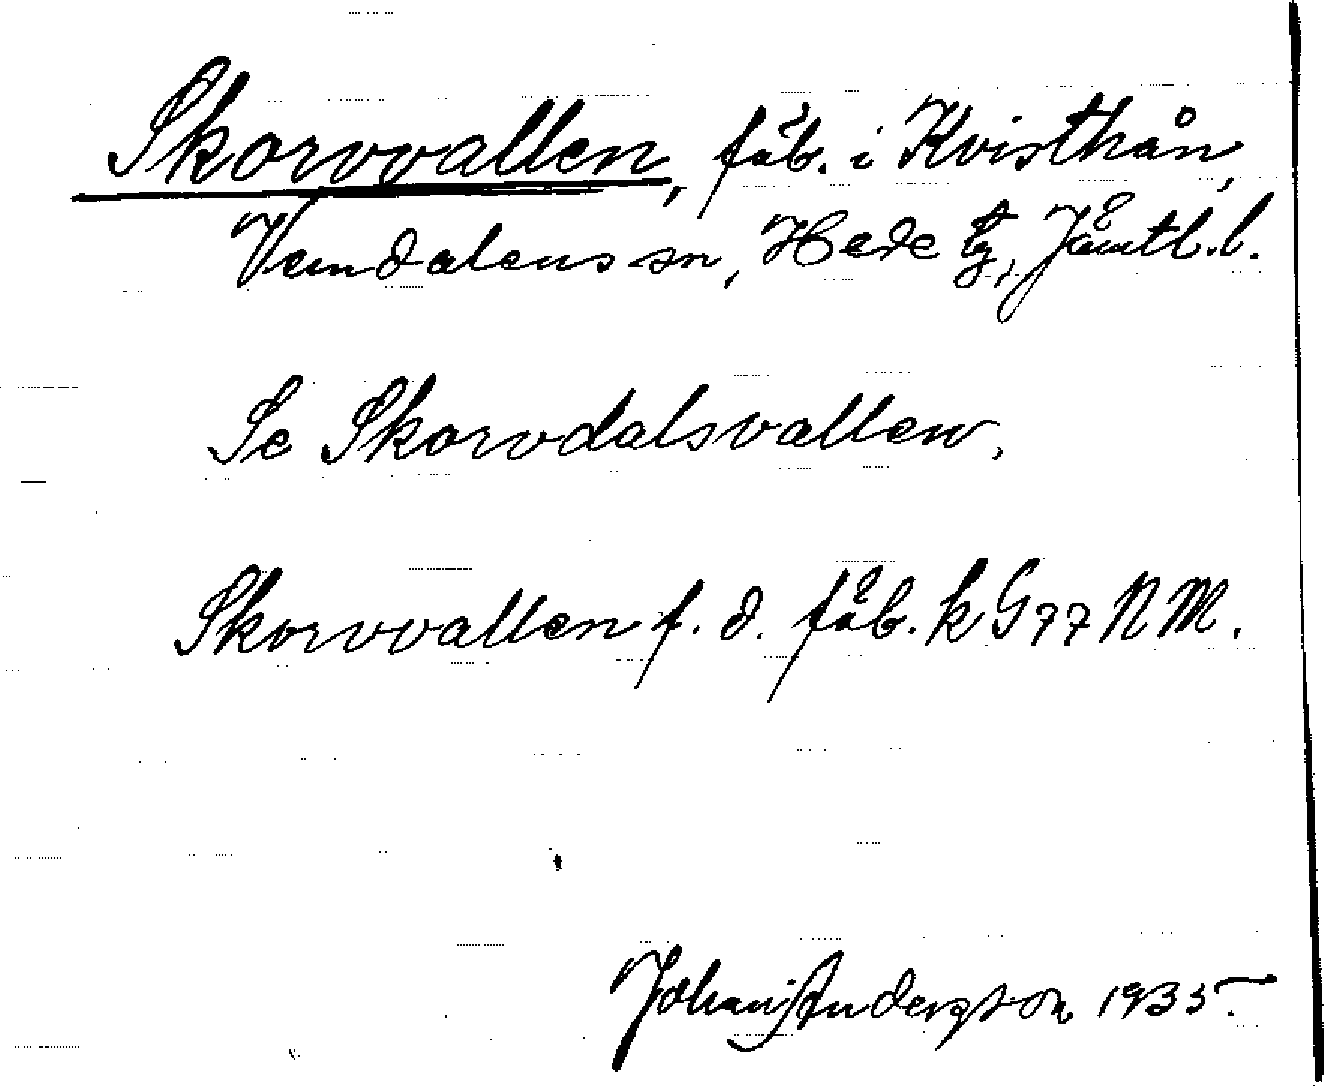 Skorvvallen, fäb. i Kvisthån,
Vemdalens sn, Hede tg, Jämtl. l.
Se Skorvdalsvallen.
Skorvvallen f. d. fäb. k G77 NM.
Johan Anderson 1935.